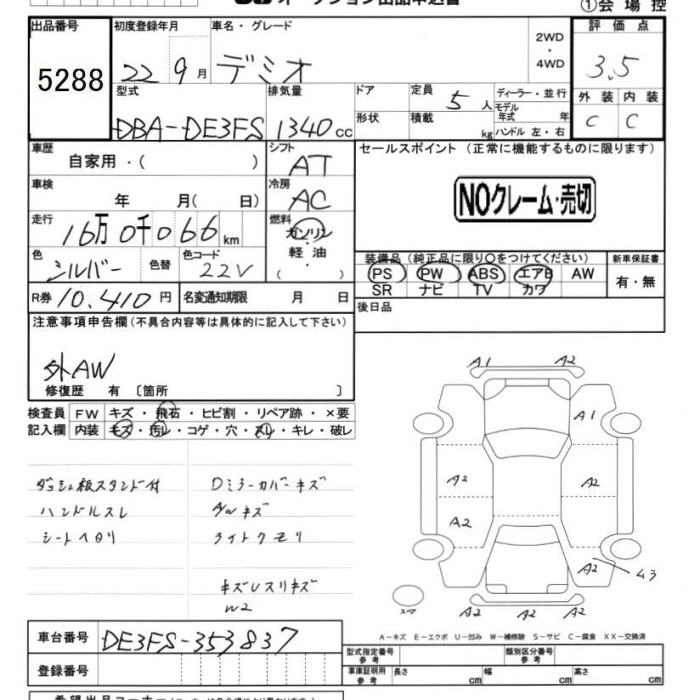 オークション出品申込書
①会場控
出品番号 初度登録年月 車名・グレード 2WD・4WD 評価点
5288 22 9月 デミオ 3.5
型式 排気量 ドア 定員 5人 ディーラー・並行 外装 内装
DBA-DE3FS 1340cc 形状 積載 kg モデル年式 年 ハンドル 左・右 C C
車歴 シフト セールスポイント (正常に機能するものに限ります)
自家用・( ) AT
車検 年 月( 日) 冷房 AC NOクレーム・売切
走行 16万0千066km 燃料 ガソリン
軽油
色 シルバー 色替 色コード 22V
装備品(純正品に限り○をつけてください) 新車保証書
PS PW ABS エアB AW 有・無
SR ナビ TV カワ
R券 10,410円 名変通知期限 月 日 後日品
注意事項申告欄(不具合内容等は具体的に記入して下さい)
外AW
修復歴 有〔箇所 〕
検査員 FW キズ・飛石・ヒビ割・リペア跡・×要
記入欄 内装 キズ・汚レ・コゲ・穴・スレ・キレ・破レ
ダッシュ板スタンド付 Dミラーカバーキズ
ハンドルスレ AWキズ
シートヘタリ ライトクモリ
キズUスリキズ
W2
A1 A2
A1
A2 A2
A2
A2 43
スペア A2 A2
A-キズ E-エクボ U-凹み W-補修跡 S-サビ C-腐食 XX-交換済
車台番号 DE3FS-353837
型式指定番号 参考 類別区分番号 参考
登録番号 車庫証明用 参考 長さ cm 幅 cm 高さ cm